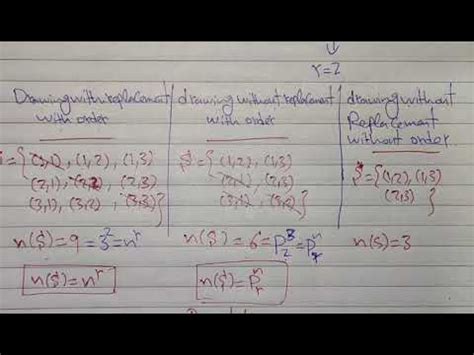 r=2
Drawing with replacement
with order
drawing without replacement
with order
drawing without
Replacement
without order
= {(1,1), (1,2), (1,3)
(2,1), (2,2), (2,3)
(3,1), (3,2), (3,3)}
S = {(1,2), (1,3)
(2,1), (2,3)
(3,1), (3,2)}
S = {(1,2), (1,3)
(2,3)}
n(S) = 9 = 3² = nʳ
n(S) = 6 = P³₂ = Pⁿᵣ
n(S) = 3
n(S) = nʳ
n(S) = Pⁿᵣ